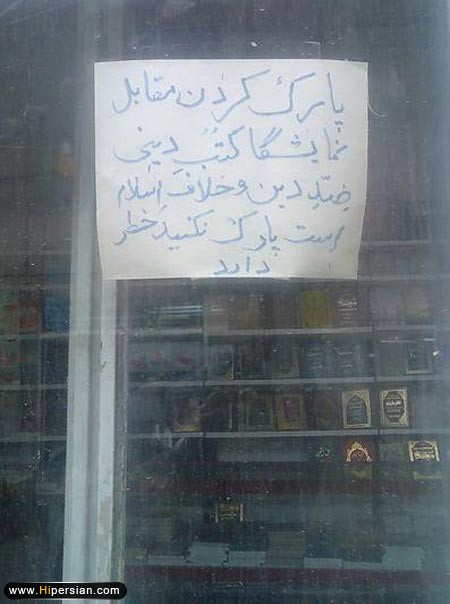 پارک کردن مقابل
نمایشگا کتب دینی
ضدِّ دین و خلافِ اسلام
است پارک نکنید خطر
دارد
www.Hipersian.com